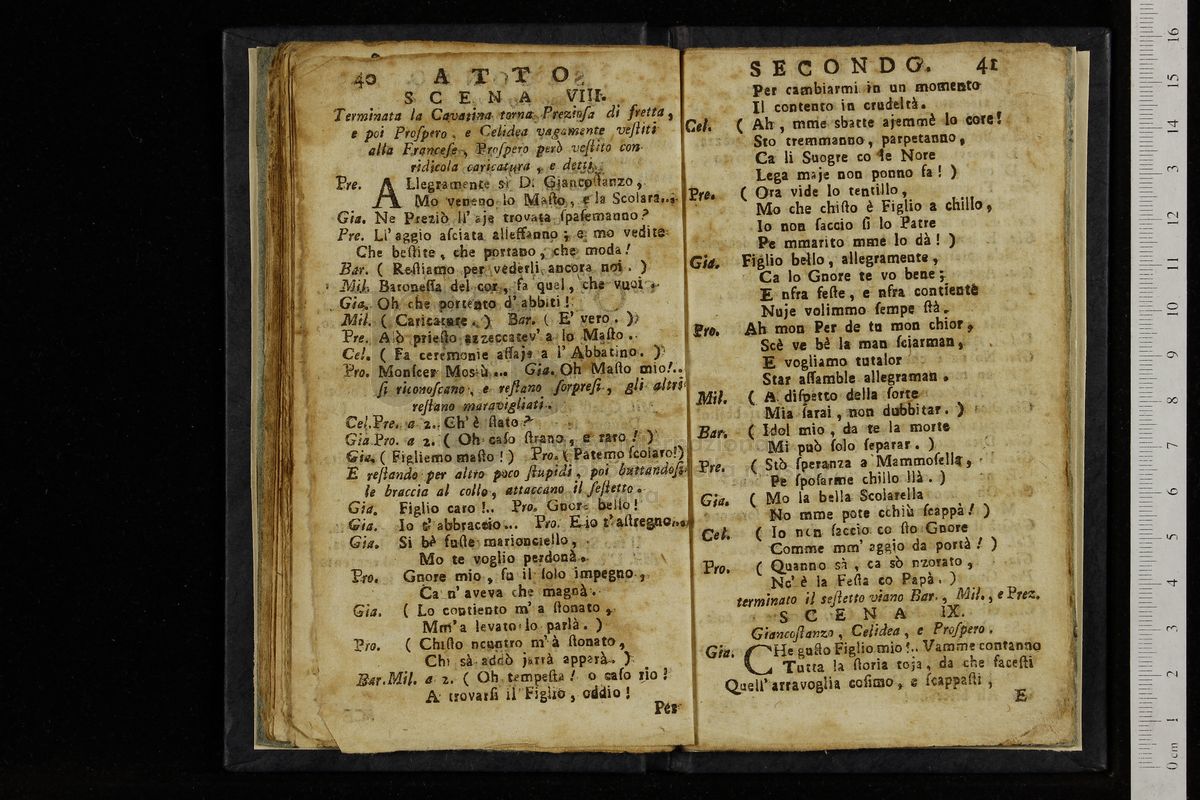 40 ATTO
SCENA VIII.
Terminata la Cavatina torna Preziosa di fretta,
e poi Prospero, e Celidea vagamente vestiti
alla Francese, Prospero però vestito con
ridicola caricatura, e detti.
Pre. ALlegramente si D. Giancostanzo,
Mo veneno lo Masto, e la Scolara...
Gia. Ne Preziò ll' aje trovata spasemanno?
Pre. Ll' aggio asciata allessanno; e mo vedite
Che bestite, che portano, che moda!
Bar. ( Restiamo per vederli ancora noi. )
Mil. Baronessa del cor, fa quel, che vuoi.
Gia. Oh che portento d' abbiti!
Mil. ( Caricature. ) Bar. ( E' vero. )
Pre. Alò priesto azzeccatev' a lo Masto.
Cel. ( Fa ceremonie assaje a l' Abbatino. )
Pro. Monscer Mosiù... Gia. Oh Masto mio!..
si riconoscano, e restano sorpresi, gli altri
restano maravigliati.
Cel.Pre. a 2. Ch' è stato?
Gia.Pro. a 2. ( Oh caso strano, e raro! )
Gia. ( Figliemo masto! ) Pro. ( Patemo scolaro!)
E restando per altro poco stupidi, poi buttandosi
le braccia al collo, attaccano il sestetto.
Gia. Figlio caro!.. Pro. Gnore bello!
Gia. Io t' abbraccio... Pro. E io t' astregno...
Gia. Si bè fuste marionciello,
Mo te voglio perdonà.
Pro. Gnore mio, fu il solo impegno,
Ca n' aveva che magnà.
Gia. ( Lo contiento m' a stonato,
Mm' a levato lo parlà. )
Pro. ( Chisto ncuntro m' à stonato,
Chi sà addò jarrà apparà. )
Bar.Mil. a 2. ( Oh tempesta! o caso rio!
A trovarsi il Figlio, oddio!
Per
SECONDO. 41
Per cambiarmi in un momento
Il contento in crudeltà.
Cel. ( Ah, mme sbatte ajemmè lo core!
Sto tremmanno, parpetanno,
Ca li Suogre co le Nore
Lega maje non ponno fa! )
Pre. ( Ora vide lo tentillo,
Mo che chisto è Figlio a chillo,
Io non saccio si lo Patre
Pe mmarito mme lo dà! )
Gia. Figlio bello, allegramente,
Ca lo Gnore te vo bene;
E nfra feste, e nfra contiente
Nuje volimmo sempe stà.
Pro. Ah mon Per de tu mon chior,
Scè ve bè la man sciarman,
E vogliamo tutalor
Star assamble allegraman.
Mil. ( A dispetto della sorte
Mia sarai, non dubbitar. )
Bar. ( Idol mio, da te la morte
Mi può solo separar. )
Pre. ( Stò speranza a Mammosella,
Pe sposarme chillo llà. )
Gia. ( Mo la bella Scolarella
No mme pote cchiù scappà! )
Cel. ( Io non saccio co sto Gnore
Comme mm' aggio da portà! )
Pro. ( Quanno sà, ca sò nzorato,
Nc' è la Festa co Papà. )
terminato il sestetto viano Bar., Mil., e Prez.
SCENA IX.
Giancostanzo, Celidea, e Prospero.
Gia. CHe gusto Figlio mio!.. Vamme contanno
Tutta la storia toja, da che facesti
Quell' arravoglia cosimo, e scappasti,
E